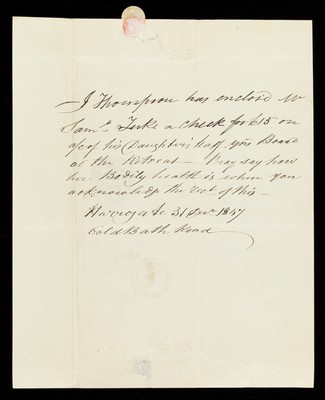 J Thompson has enclosed Mr
Saml. Tuke a Check for £15 on
a/c of his Daughters half yrs Board
at the Retreat — Pray say how
her Bodily health is when you
acknowledge the rect of this —
Harrogate 31 Decr 1847
Cold Bath Road